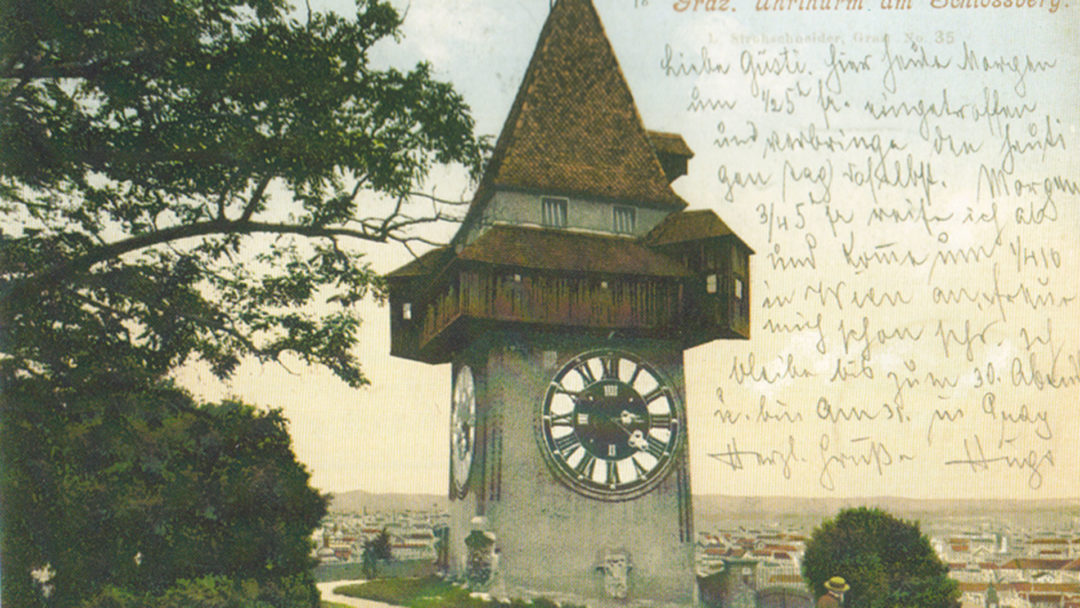 18
Graz. Uhrthurm am Schlossberg.
L. Strohschneider, Graz No. 35
Liebe Gusti. Hier heute Morgen
um ½5h fr. eingetroffen
und verbringe den heuti
gen Tag daselbst. Morgen
3/45h fr reise ich ab
und komme um 1/410
in Wien an, freue
mich schon sehr. Ich
bleibe bis zum 30. Abend
u. bin am 31. in Prag
Herzl. Grüße Hugo
XII
I
II
III
IIII
V
VI
VII
VIII
IX
X
XI